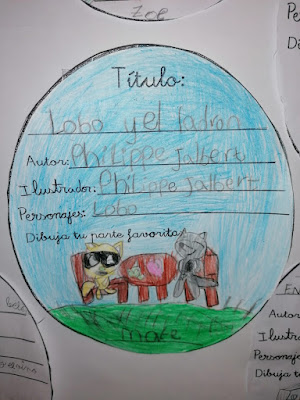 Zoe
Título:
Lobo y el ladrón
Autor: Philippe Jalbert
Ilustrador: Philippe Jalbert
Personajes: Lobo
Dibuja tu parte favorita:
Autor
Ilustra
Personaje
Dibuja t